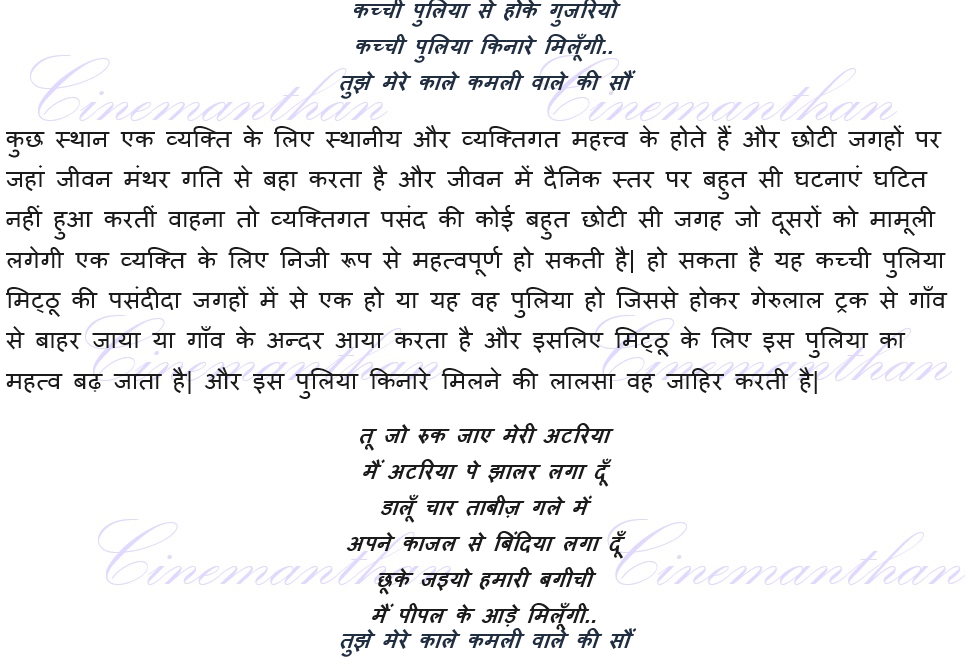 कच्ची पुलिया से होके गुजरियो
कच्ची पुलिया किनारे मिलूँगी..
तुझे मेरे काले कमली वाले की सौं
Cinemanthan Cinemanthan
कुछ स्थान एक व्यक्ति के लिए स्थानीय और व्यक्तिगत महत्त्व के होते हैं और छोटी जगहों पर
जहां जीवन मंथर गति से बहा करता है और जीवन में दैनिक स्तर पर बहुत सी घटनाएं घटित
नहीं हुआ करतीं वाहना तो व्यक्तिगत पसंद की कोई बहुत छोटी सी जगह जो दूसरों को मामूली
लगेगी एक व्यक्ति के लिए निजी रूप से महत्वपूर्ण हो सकती है| हो सकता है यह कच्ची पुलिया
मिट्ठू की पसंदीदा जगहों में से एक हो या यह वह पुलिया हो जिससे होकर गेरुलाल ट्रक से गाँव
से बाहर जाया या गाँव के अन्दर आया करता है और इसलिए मिट्ठू के लिए इस पुलिया का
Cinemanthan Cinemanthan
महत्व बढ़ जाता है| और इस पुलिया किनारे मिलने की लालसा वह जाहिर करती है|
तू जो रुक जाए मेरी अटरिया
मैं अटरिया पे झालर लगा दूँ
डालूँ चार ताबीज़ गले में
अपने काजल से बिंदिया लगा दूँ
Cinemanthan Cinemanthan
छूके जइयो हमारी बगीची
मैं पीपल के आड़े मिलूँगी..
तुझे मेरे काले कमली वाले की सौं